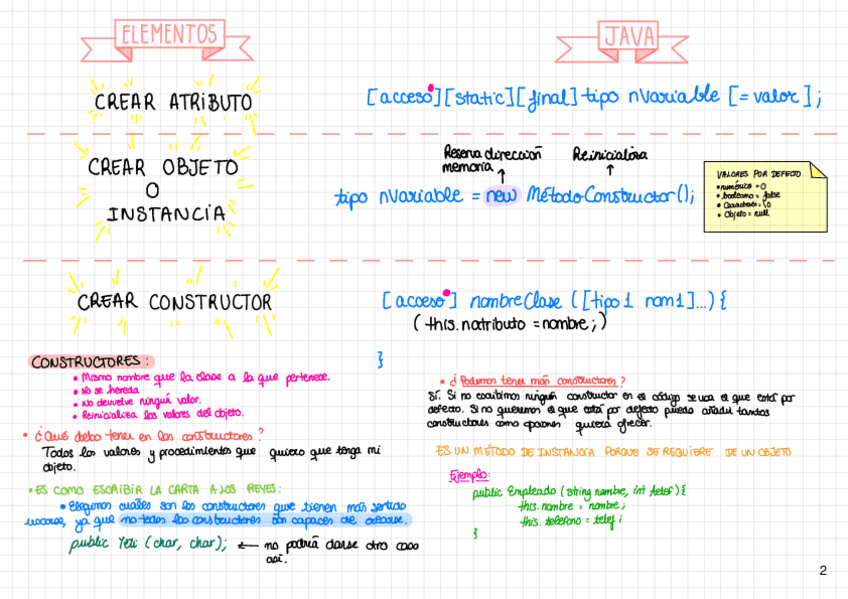 ELEMENTOS
JAVA
CREAR ATRIBUTO
[acceso][static][final] tipo nVariable [= valor];
CREAR OBJETO
O
INSTANCIA
Reserva dirección
memoria
Reinicialiosa
tipo nVariable = new MétodoConstructor();
VALORES POR DEFECTO
• numérico = 0
• booleano = false
• Caracteres = \0
• Objeto = null
CREAR CONSTRUCTOR
[acceso] nombreClase ([tipo1 nom1]...) {
(this.natributo = nombre;)
}
CONSTRUCTORES:
• Mismo nombre que la clase a la que pertenece.
• No se hereda
• No devuelve ningún valor.
• Reinicializa los valores del objeto.
• ¿Qué debo tener en los constructores?
Todos los valores y procedimientos que quiero que tenga mi
objeto.
• ES COMO ESCRIBIR LA CARTA A LOS REYES:
• Elegimos cuáles son los constructores que tienen más sentido
usarse, ya que no todos los constructores son capaces de crearse.
public Yeti (char, char); ← no podría darse otro caso
así.
• ¿Podemos tener más constructores?
Sí. Si no escribimos ningún constructor en el código se usa el que está por
defecto. Si no queremos el que está por defecto puedo añadir tantos
constructores como opciones quiera ofrecer.
ES UN MÉTODO DE INSTANCIA PORQUE SE REQUIERE DE UN OBJETO
Ejemplo:
public Empleado (string nombre, int telef) {
this.nombre = nombre;
this.telefono = telef;
}
2